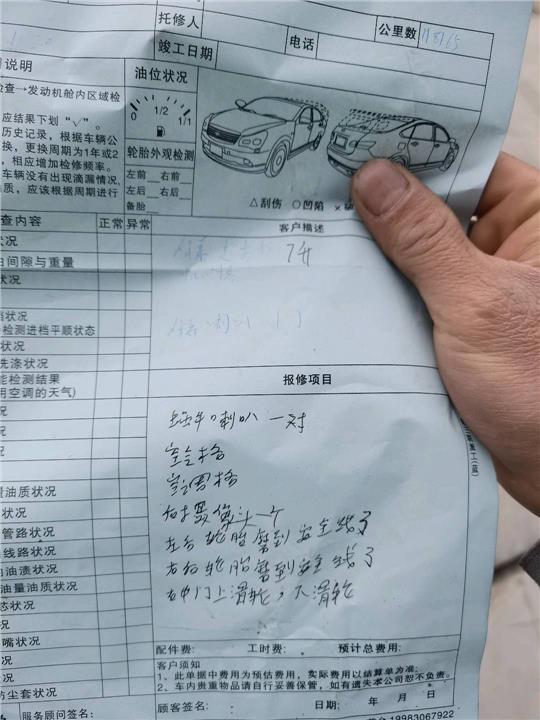 托修人
公里数
竣工日期
电话
说明
油位状况
查→发动机舱内区域检
应结果下划“√”。
历史记录，根据车辆公
换，更换周期为1年或2
，相应增加检修频率。
车辆没有出现滴漏情况，
质，应该根据周期进行
0 1/2 1/1
轮胎外观检测
左前 右前
左后 右后
备胎
△刮伤 ○凹陷 ×
查内容 正常 异常
客户描述
状况
由间隙与重量
状况
状况
检测进档平顺状态
状况
洗涤状况
能检测结果
用空调的天气)
况
况
况
量油质状况
状况
管路状况
线路状况
油渍状况
油量油质状况
态状况
况
嘴状况
况
防尘套状况
7升
报修项目
蜗牛喇叭 一对
空气格
空调格
右摄像头一个
左后轮胎磨到安全线了
右后轮胎磨到安全线了
右中门上滑轮，大滑轮
配件费: 工时费: 预计总费用:
客户须知
1、此单据中费用为预估费用，实际费用以结算单为准;
2、车内贵重物品请自行妥善保管，如有遗失本公司恕不负责。
服务顾问签名: 顾客签名: 日期: 年 月 日
19983067922